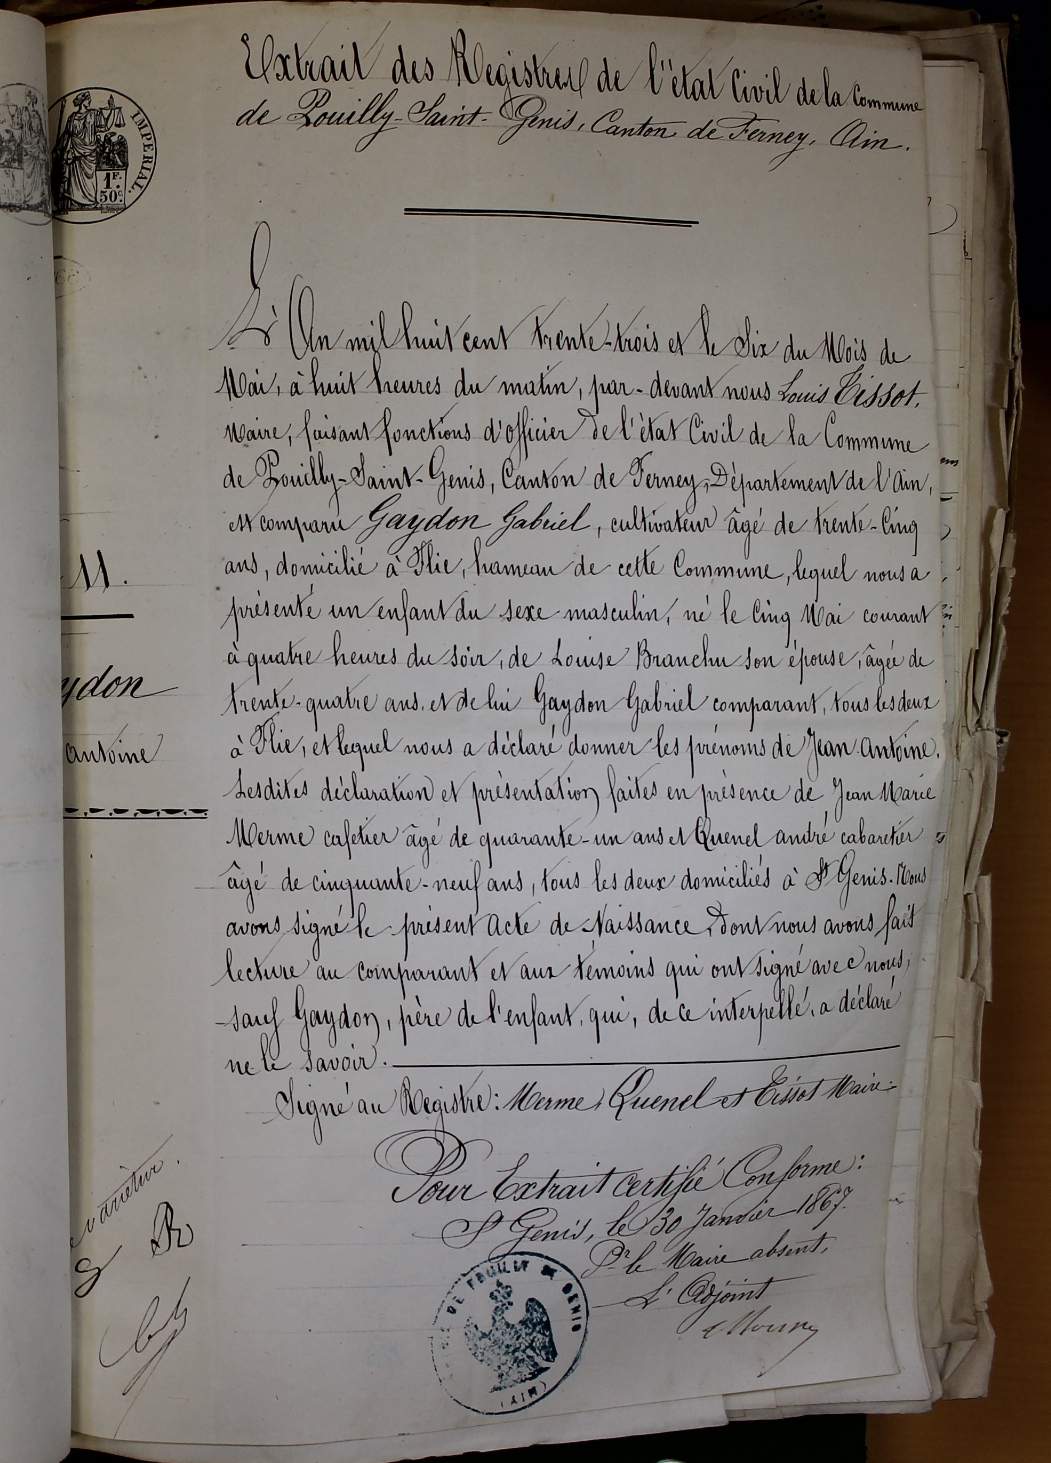 Extrait des Registres de l'état Civil de la Commune
de Pouilly-Saint-Genis, Canton de Ferney, Ain.
IMPERIAL.
1F.
50c
L'An mil huit cent trente-trois et le Six du Mois de
Mai, à huit heures du matin, par-devant nous Louis Tissot,
Maire, faisant fonctions d'officier de l'état Civil de la Commune
de Pouilly-Saint-Genis, Canton de Ferney, Département de l'Ain,
est comparu Gaydon Gabriel, cultivateur âgé de trente-Cinq
ans, domicilié à Flie, hameau de cette Commune, lequel nous a
présenté un enfant du sexe masculin, né le Cinq Mai courant
à quatre heures du soir, de Louise Branchu son épouse, âgée de
trente-quatre ans, et de lui Gaydon Gabriel comparant, tous les deux
à Flie, et lequel nous a déclaré donner les prénoms de Jean Antoine.
Lesdites déclaration et présentation faites en présence de Jean Marie
Merme cafetier âgé de quarante-un ans et Quenel andré cabaretier
âgé de cinquante-neuf ans, tous les deux domiciliés à St Genis. Nous
avons signé le présent acte de Naissance, Dont nous avons fait
lecture au comparant et aux témoins qui ont signé avec nous,
sauf Gaydon, père de l'enfant, qui, de ce interpellé, a déclaré
ne le savoir.
Signé au Registre: Merme, Quenel et Tissot Maire.
Pour Extrait certifié Conforme:
St Genis, le 30 Janvier 1867.
Pr le Maire absent,
L'Adjoint
DE POUILLY St GENIS
(AIN)
11.
ydon
antoine
varietur.